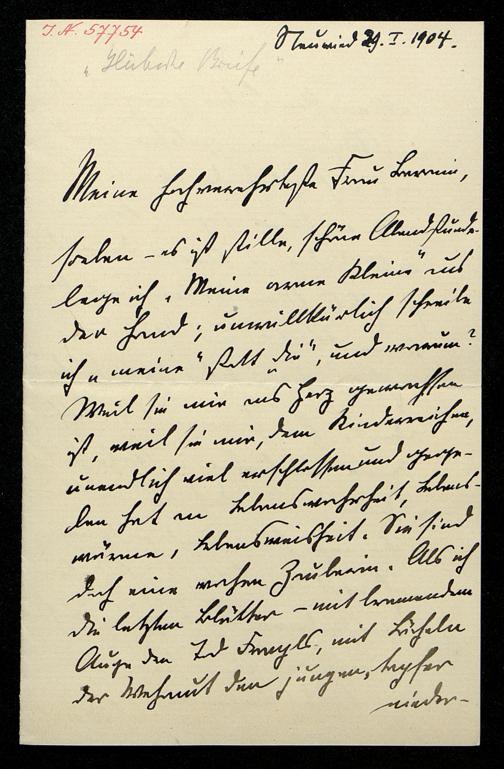 I.N. 57754
Neuwied 29. I. 1904.
"Hübsche Briefe"
Meine hochverehrteste Frau Baronin,
soeben – es ist stille, schöne Abendstunde –
lege ich "Meine arme Kleine" aus
der Hand; unwillkürlich schreibe
ich "meine" statt "die", und warum?
Weil sie mir ans Herz gewachsen
ist, weil sie mir, dem Kinderreichen,
unendlich viel erschlossen und gege-
ben hat an Lebenswahrheit, Lebens-
wärme, Lebensweisheit. Sie sind
doch eine wahre Zauberin. Als ich
die letzten Blätter – mit brennendem
Auge den Tod, mit Lächeln
der Wehmut den jungen, tapfer
nieder-